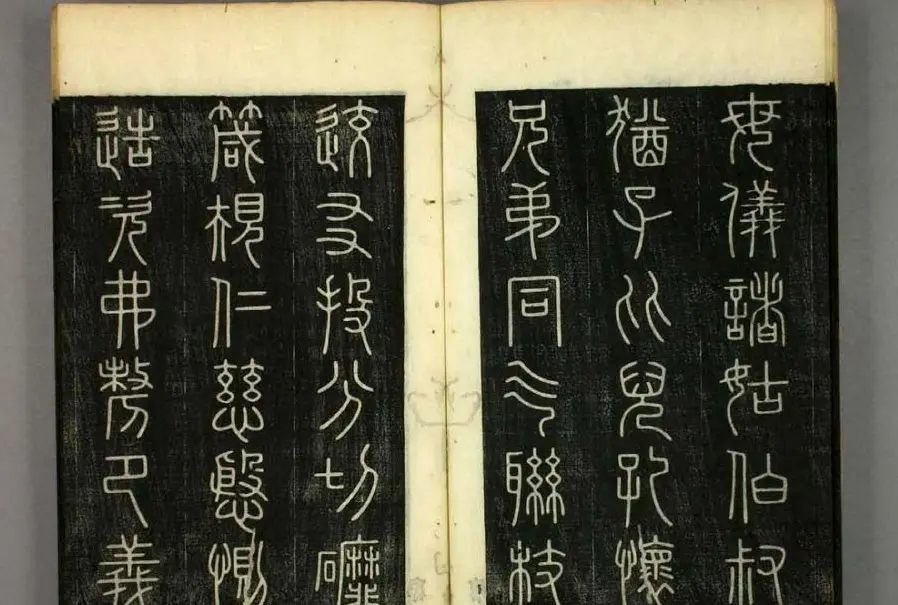 母儀諸姑伯叔
猶子比兒孔懷
兄弟同气聯枝
交友投分切磨
箴規仁慈隱惻
造次弗離節義